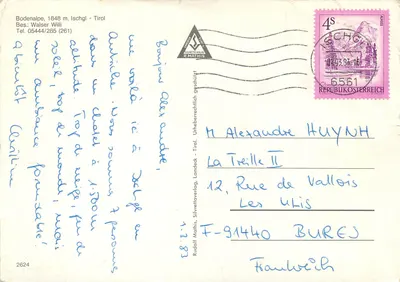 Bodenalpe, 1848 m. Ischgl - Tirol
Bes.: Walser Willi
Tel. 05444/285 (261)
Bonjour Alexandre,
me voilà ici à Ischgl en
Autriche. Nous sommes 7 personnes
dans un chalet à 1500m
altitude. Trop de neige, peu de
soleil, trop de monde, mais
une ambiance formidable!
A bientôt
Christine
1.3.83
Rudolf Mathis, Silvrettaverlag, Landeck - Tirol. Urheberrechtlich geschützt
2624
4S
REPUBLIK ÖSTERREICH
ISCHGL
6561
M. Alexandre HUYNH
La Treille II
12, Rue de Vallois
Les Ulis
F-91440 BURES
Frankreich